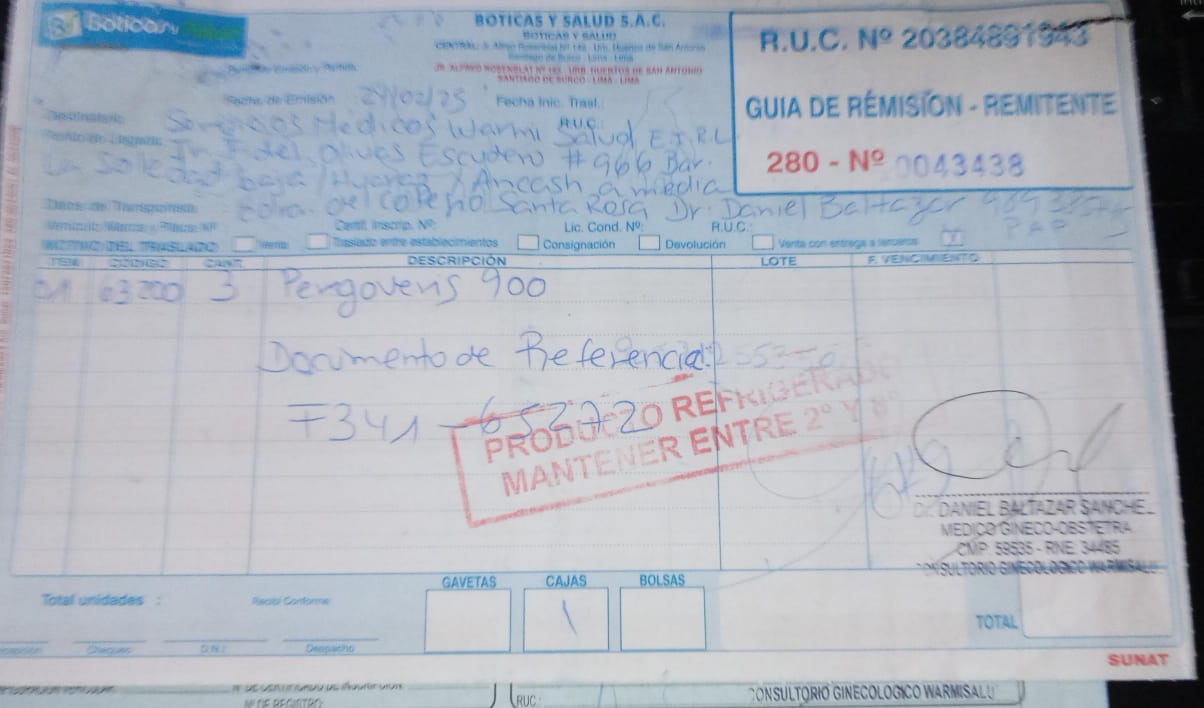 Boticas y Salud
BOTICAS Y SALUD S.A.C.
BOTICAS Y SALUD
JR. ALFREDO ROSENBLAT Nº 165 - URB. HUERTOS DE SAN ANTONIO
SANTIAGO DE SURCO - LIMA - LIMA
R.U.C. Nº 20384891943
GUIA DE REMISIÓN - REMITENTE
280 - Nº 0043438
Fecha de Emisión 29/02/25 Fecha Inic. Trasl.:
Destinatario: Servicios Medicos Warmi Salud E.I.R.L
R.U.C.:
Punto de Llegada: Jr. Fidel Olivas Escudero # 966 Bar.
La Soledad baja / Huaraz / Ancash a media
cdra. del colegio Santa Rosa Dr. Daniel Baltazar
Datos de Transportista:
PAP
Vehículo Marca y Placa Nº Certif. Inscrip. Nº: Lic. Cond. Nº: R.U.C.:
MOTIVO DEL TRASLADO Venta Traslado entre establecimientos Consignación Devolución Venta con entrega a terceros X
ITEM CÓDIGO CANT. DESCRIPCIÓN LOTE F. VENCIMIENTO
01 63200 3 Pergoveris 900
Documento de Referencia:
F341-652720
PRODUCTO REFRIGERADO
MANTENER ENTRE 2º Y 8º
DANIEL BALTAZAR SANCHE
MEDICO GINECO-OBSTETRA
CMP 59535 - RNE 34485
CONSULTORIO GINECOLOGICO WARMISALU
GAVETAS CAJAS BOLSAS
Total unidades : Recibí Conforme 1
TOTAL
Cheques D.N.I. Despacho
SUNAT
Nº DE REGISTRO:
RUC:
CONSULTORIO GINECOLOGICO WARMISALU